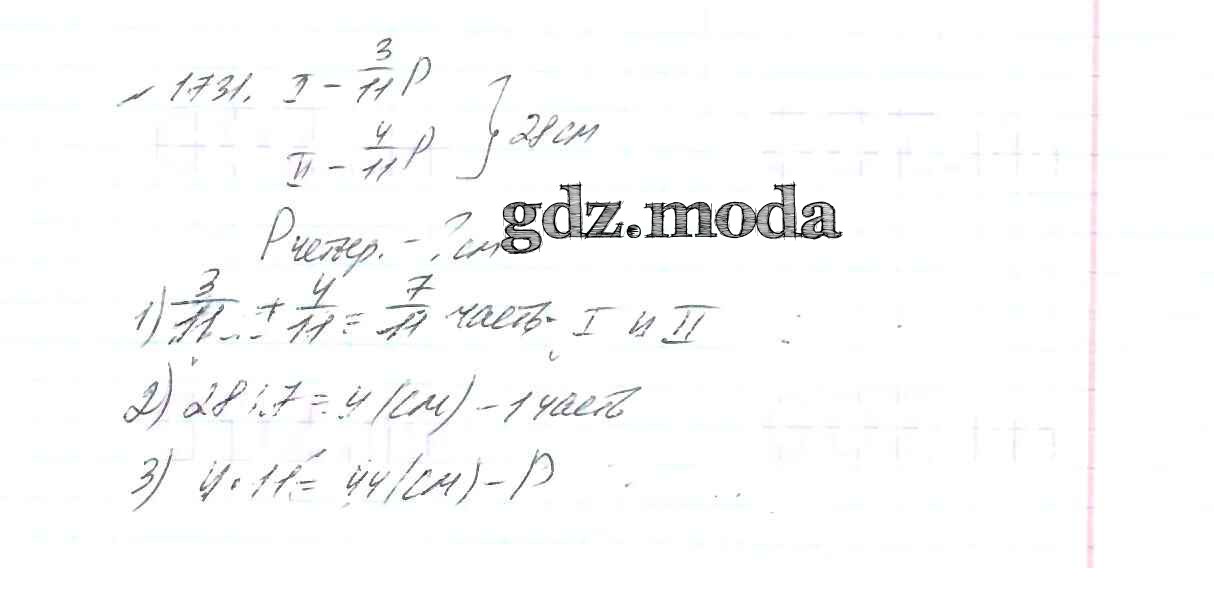 № 1731. I - 3/11 P
II - 4/11 P } 28 см
gdz.moda
P четыр. - ? см
1) 3/11 + 4/11 = 7/11 часть - I и II
2) 28 : 7 = 4 (см) - 1 часть
3) 4 · 11 = 44 (см) - P